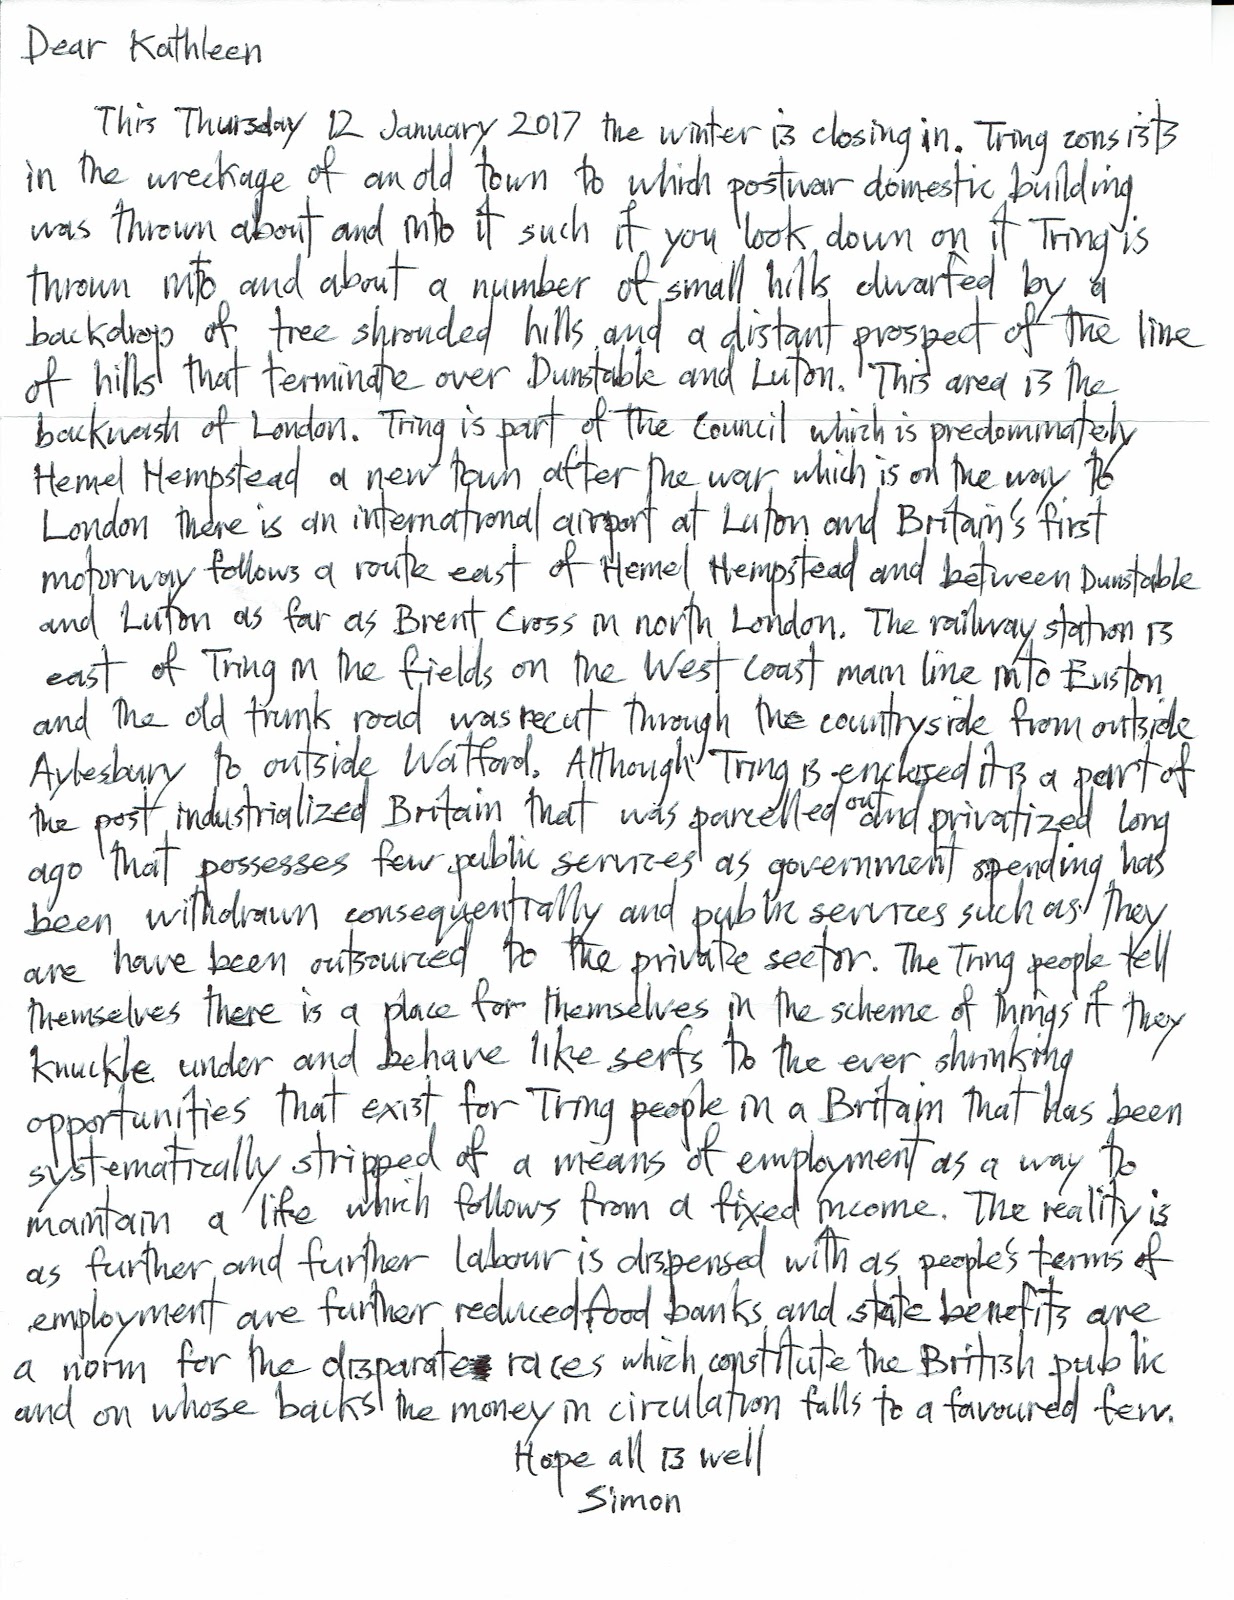 Dear Kathleen
This Thursday 12 January 2017 the winter is closing in. Tring consists
in the wreckage of an old town to which postwar domestic building
was thrown about and into it such if you look down on it Tring is
thrown into and about a number of small hills dwarfed by a
backdrop of tree shrouded hills and a distant prospect of the line
of hills that terminate over Dunstable and Luton. This area is the
backwash of London. Tring is part of the Council which is predominately
Hemel Hempstead a new town after the war which is on the way to
London there is an international airport at Luton and Britain's first
motorway follows a route east of Hemel Hempstead and between Dunstable
and Luton as far as Brent Cross in north London. The railway station is
east of Tring in the fields on the West Coast main line into Euston
and the old trunk road was recut through the countryside from outside
Aylesbury to outside Watford. Although Tring is enclosed it is a part of
the post industrialized Britain that was parcelled out and privatized long
ago that possesses few public services as government spending has
been withdrawn consequentrally and public services such as they
are have been outsourced to the private sector. The Tring people tell
themselves there is a place for themselves in the scheme of things if they
knuckle under and behave like serfs to the ever shrinking
opportunities that exist for Tring people in a Britain that has been
systematically stripped of a means of employment as a way to
maintain a life which follows from a fixed income. The reality is
as further and further labour is dispensed with as people's terms of
employment are further reduced food banks and state benefits are
a norm for the disparate races which constitute the British public
and on whose backs the money in circulation falls to a favoured few.
Hope all is well
Simon